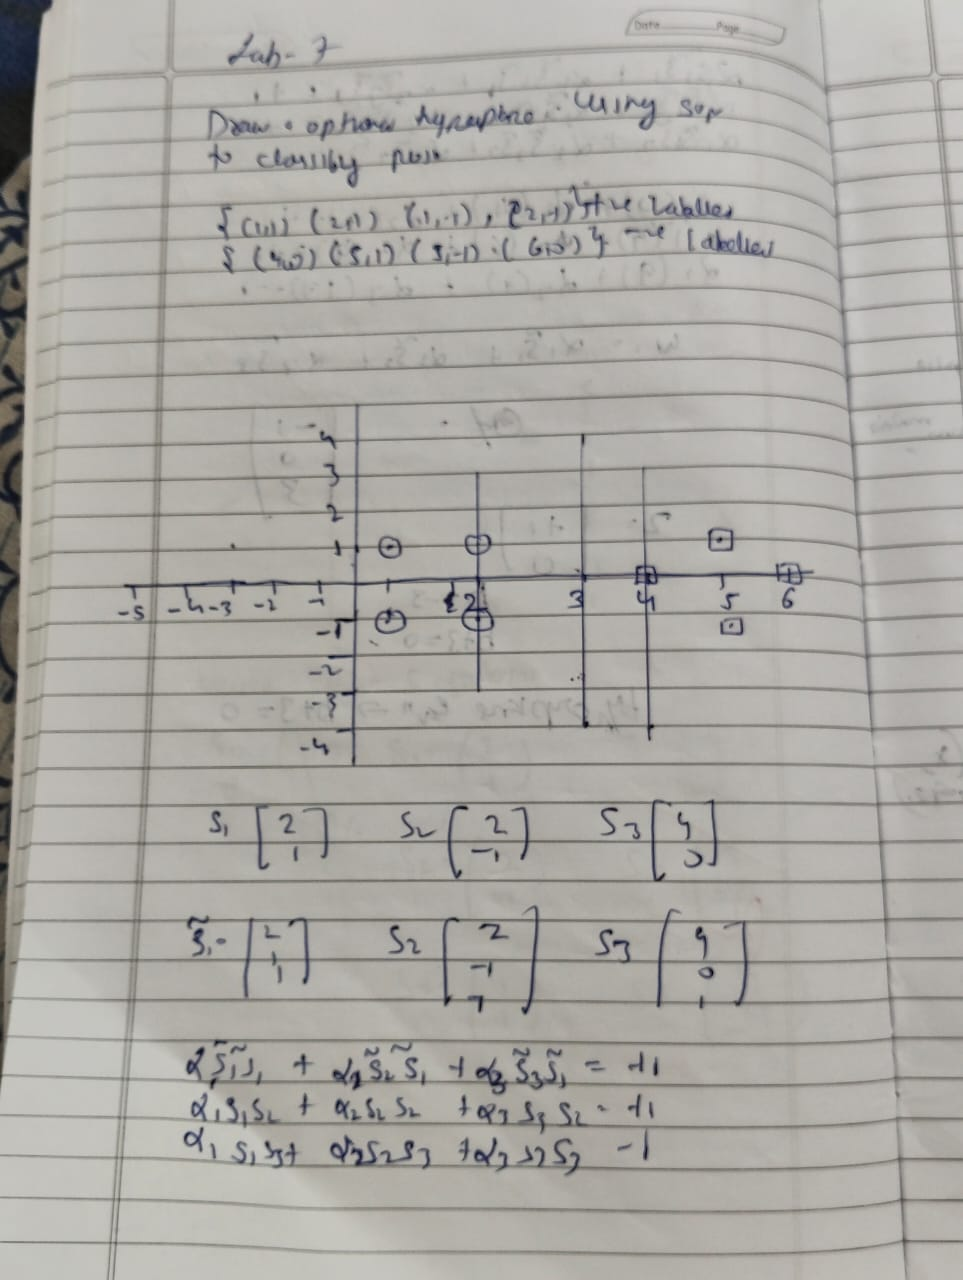 Date Page
Lab- 7
Draw optional hyperplane using SVM
to classify
{(1,1) (2,1) (1,-1), (2,-1)} +ve Labelled
{ (4,0) (5,1) (5,-1) (6,0) } -ve labelled
4
3
2
1
-5 -4 -3 -2 -1 2 3 4 5 6
-1
-2
-3
-4
S1 [2 S2 [2 S3 [4
1] -1] 0]
S̃1- [2 S2 [2 S3 [4
1 -1 0
1] 1] 1]
α S̃1 S̃1 + α2 S̃2 S̃1 + α3 S̃3 S̃1 = +1
α1 S1 S2 + α2 S2 S2 + α3 S3 S2 - +1
α1 S1 S3 + α2 S2 S3 + α3 S3 S3 -1